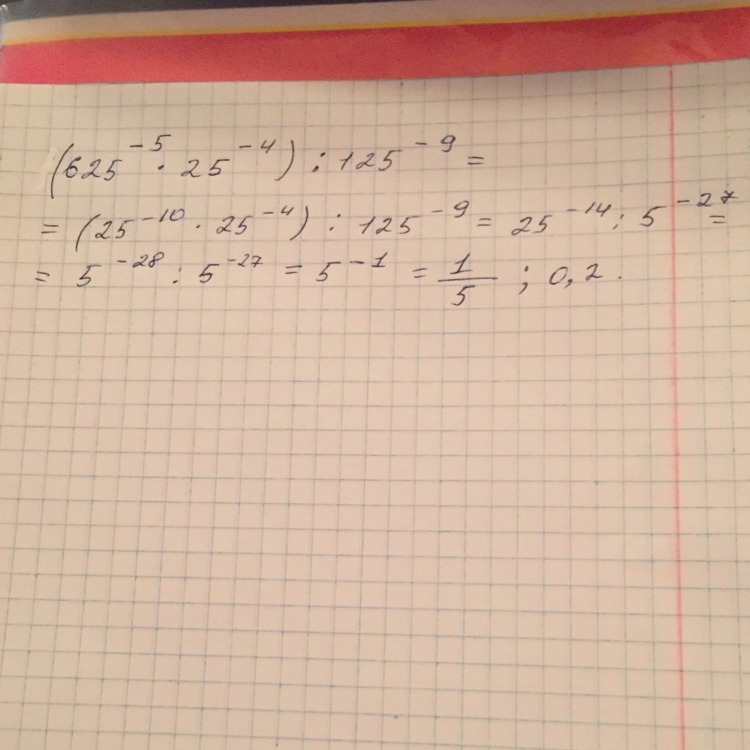 (625⁻⁵ · 25⁻⁴) : 125⁻⁹ =
= (25⁻¹⁰ · 25⁻⁴) : 125⁻⁹ = 25⁻¹⁴ : 5⁻²⁷ =
= 5⁻²⁸ : 5⁻²⁷ = 5⁻¹ = 1/5 ; 0,2.